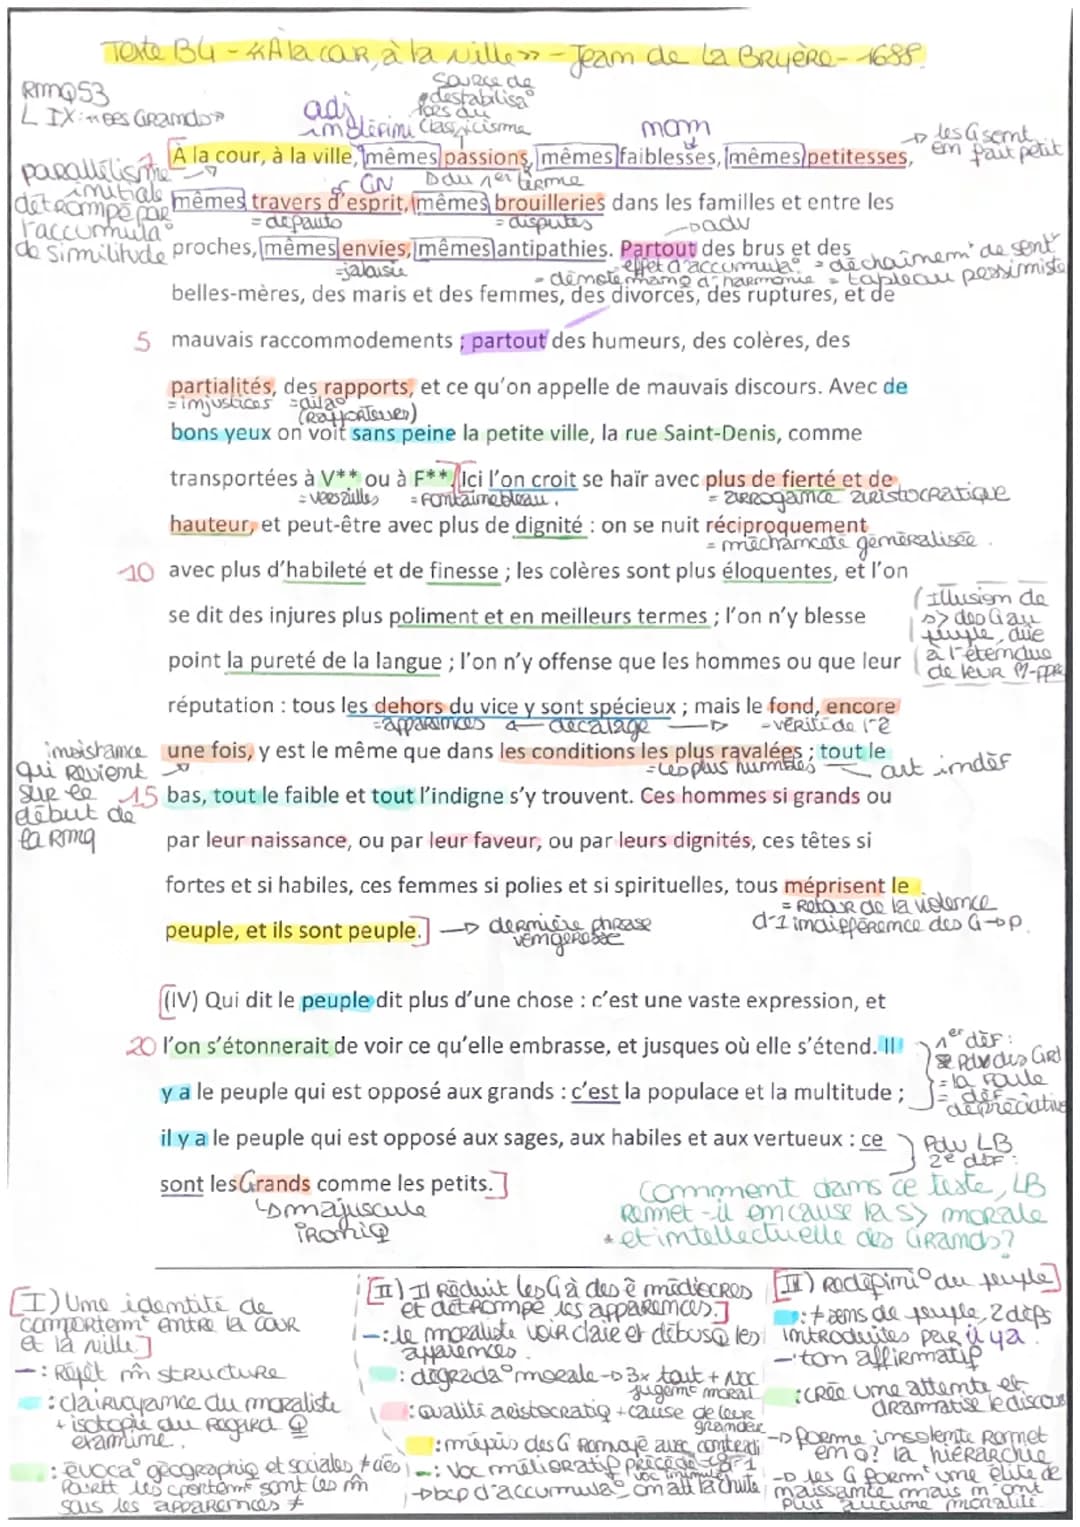 Texte B4 - «À la cour, à la ville» - Jean de La Bruyère - 1688.
RmQ 53
L IX: "DES GRANDS"
adj indéfini
source de destabilisa° des du Classicisme
nom
-> les G sont en fait petit
À la cour, à la ville, mêmes passions, mêmes faiblesses, mêmes petitesses,
parallélisme initiale détrompé par l'accumula° de similitude
GN
mêmes travers d'esprit, mêmes brouilleries dans les familles et entre les
= défauts
= disputes
-> adv
proches, mêmes envies, mêmes antipathies. Partout des brus et des
= jalousie
effet d'accumula° = déchaînem^t de sent^t
= dénote manq d'harmonie = tableau pessimiste
belles-mères, des maris et des femmes, des divorces, des ruptures, et de
5 mauvais raccommodements ; partout des humeurs, des colères, des
partialités, des rapports, et ce qu'on appelle de mauvais discours. Avec de
= injustices
(Rapporteur)
bons yeux on voit sans peine la petite ville, la rue Saint-Denis, comme
transportées à V** ou à F** [Ici l'on croit se haïr avec plus de fierté et de
= Versailles
= Fontainebleau.
= arrogance aristocratique
hauteur, et peut-être avec plus de dignité : on se nuit réciproquement
= méchanceté généralisée.
10 avec plus d'habileté et de finesse ; les colères sont plus éloquentes, et l'on
se dit des injures plus poliment et en meilleurs termes ; l'on n'y blesse
Illusion de s> des G au peuple, due à l'étendue de leur
point la pureté de la langue ; l'on n'y offense que les hommes ou que leur
réputation : tous les dehors du vice y sont spécieux ; mais le fond, encore
= apparences <- décalage -> = vérité de l'ê
insistance qui revient sur le début de la RmQ
une fois, y est le même que dans les conditions les plus ravalées ; tout le
= les plus humbles
art indéf
15 bas, tout le faible et tout l'indigne s'y trouvent. Ces hommes si grands ou
par leur naissance, ou par leur faveur, ou par leurs dignités, ces têtes si
fortes et si habiles, ces femmes si polies et si spirituelles, tous méprisent le
= Retour de la violence
d-1 indifférence des G->p.
peuple, et ils sont peuple.] -> dernière phrase vengeresse
[(IV) Qui dit le peuple dit plus d'une chose : c'est une vaste expression, et
20 l'on s'étonnerait de voir ce qu'elle embrasse, et jusques où elle s'étend. Il
1er déf:
pdv des Grd
= la foule
= déf dépréciative
y a le peuple qui est opposé aux grands : c'est la populace et la multitude ;
il y a le peuple qui est opposé aux sages, aux habiles et aux vertueux : ce
Pdv LB
2e déf :
sont les Grands comme les petits.]
-> majuscule ironiQ
Comment dans ce texte, LB
Remet-il en cause la s> morale
et intellectuelle des Grands?
[I) Une identité de
comportem^t entre la cour
et la ville.]
- : Répét m̂ structure
: clairvoyance du moraliste
+ isotopie du Regard Q
examine.
: évoca° géographiq et sociales ≠
les cportemt sont les m̂
sous les apparences ≠
[II) Il Réduit les G à des ê médiocres
et détrompe les apparences.]
- : le moraliste voir clair et débusQ les
apparences.
: dégrada° morale -> 3x tout + voc
jugemt moral
: Qualité aristocratiQ + cause de leur
grandeur
: mépris des G
- : Voc mélioratif précédé
-> bcp d'accumula° on att la chute
[III) Redéfini° du peuple]
: ≠ sens de peuple, 2 défs
introduites par il y a.
- ton affirmatif
: crée une attente et
dramatise le discours
-> forme insolente Remet
en Q? la hiérarchie
-> les G formt une élite de
naissance mais n'ont
plus aucune moralité.